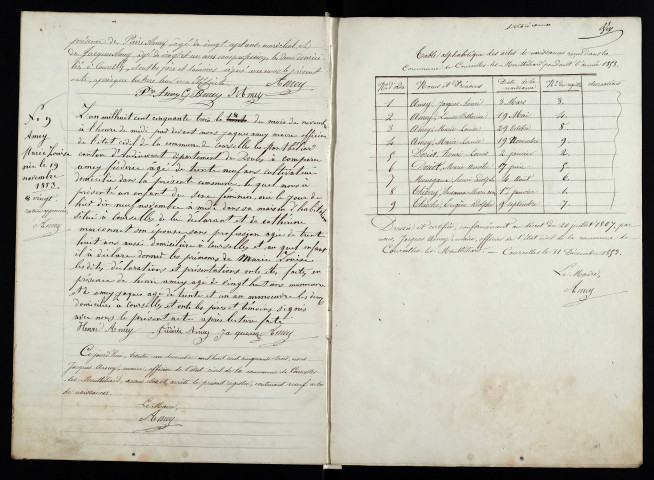 présence de Pierre Amey âgé de vingt sept ans, maréchal, et
de Jacques Amey âgé de vingt et un ans
à Courcelles et ont les père et témoins signé avec nous le présent
acte, après que lecture leur en a été faite
Amey
Prre Amey J Amey
No 9
Amey
Marie Louise
née le 19
novembre
1853
L'an mil huit cent cinquante trois le du mois de novembre
à l'heure de midi par devant nous jaques amey maire officier
de l'état civil de la commune de courselles les Montbéliard
canton d'Audincourt département du Doubs à comparu
amey féderic âgé de trente neuf ans cultivateur
domicilié dans la présente commune lequel nous a
présenté un enfant du sexe féminin, né le jour de
hier dix neuf novembre à midi dans sa maison d'habitation
située à courselles de lui déclarant et de cathérine
son épouse sans profession agée de trente
huit ans aussi domiciliée à courselles et au quel enfant
il a déclaré donner les prénoms de Marie Louise
les dites déclarations et présentations ont été faites en
présence de henri amey âgé de vingt huit ans
et de amey jaque âgé de trente et un an les deux
domiciliés à courselles et ont les père et témoins signés
avec nous le présent acte après lecture faite
Henri Amey fréderic Amey Jaques Amey
Cejourd'hui trente un décembre mil huit cent cinquante trois, nous
Jacques Amey, maire, officier de l'état civil de la commune de Courcelles
les Montbéliard, avons clos et arrêté le présent registre, contenant neuf actes
de naissances.
Le Maire,
Amey
Table alphabétique des actes de naissances reçus dans la
Commune de Courcelles-les-Montbéliard pendant l'année 1853.
Nos d'ordre Noms et Prénoms Date de la naissance Nos du registre observations
1 Amey, Jaques Louis 3 Mars 3.
2 Amey, Louise Catherine 19 Mai 4.
3 Amey, Marie Louise 29 Octobre 8.
4 Amey, Marie Louise 19 Novembre 9.
5 Louis 2 janvier 2.
6 Marie 5.
7 4 Août 6.
8 1er janvier 1.
9 Charles Eugène Adolphe 9 septembre 7.
Dressé et certifié, conformément au décret du 20 juillet 1807, par
nous, Jacques Amey, maire, officier de l'état civil de la commune de
Courcelles-les-Montbéliard. — Courcelles le 31 Décembre 1853.
Le Maire,
Amey